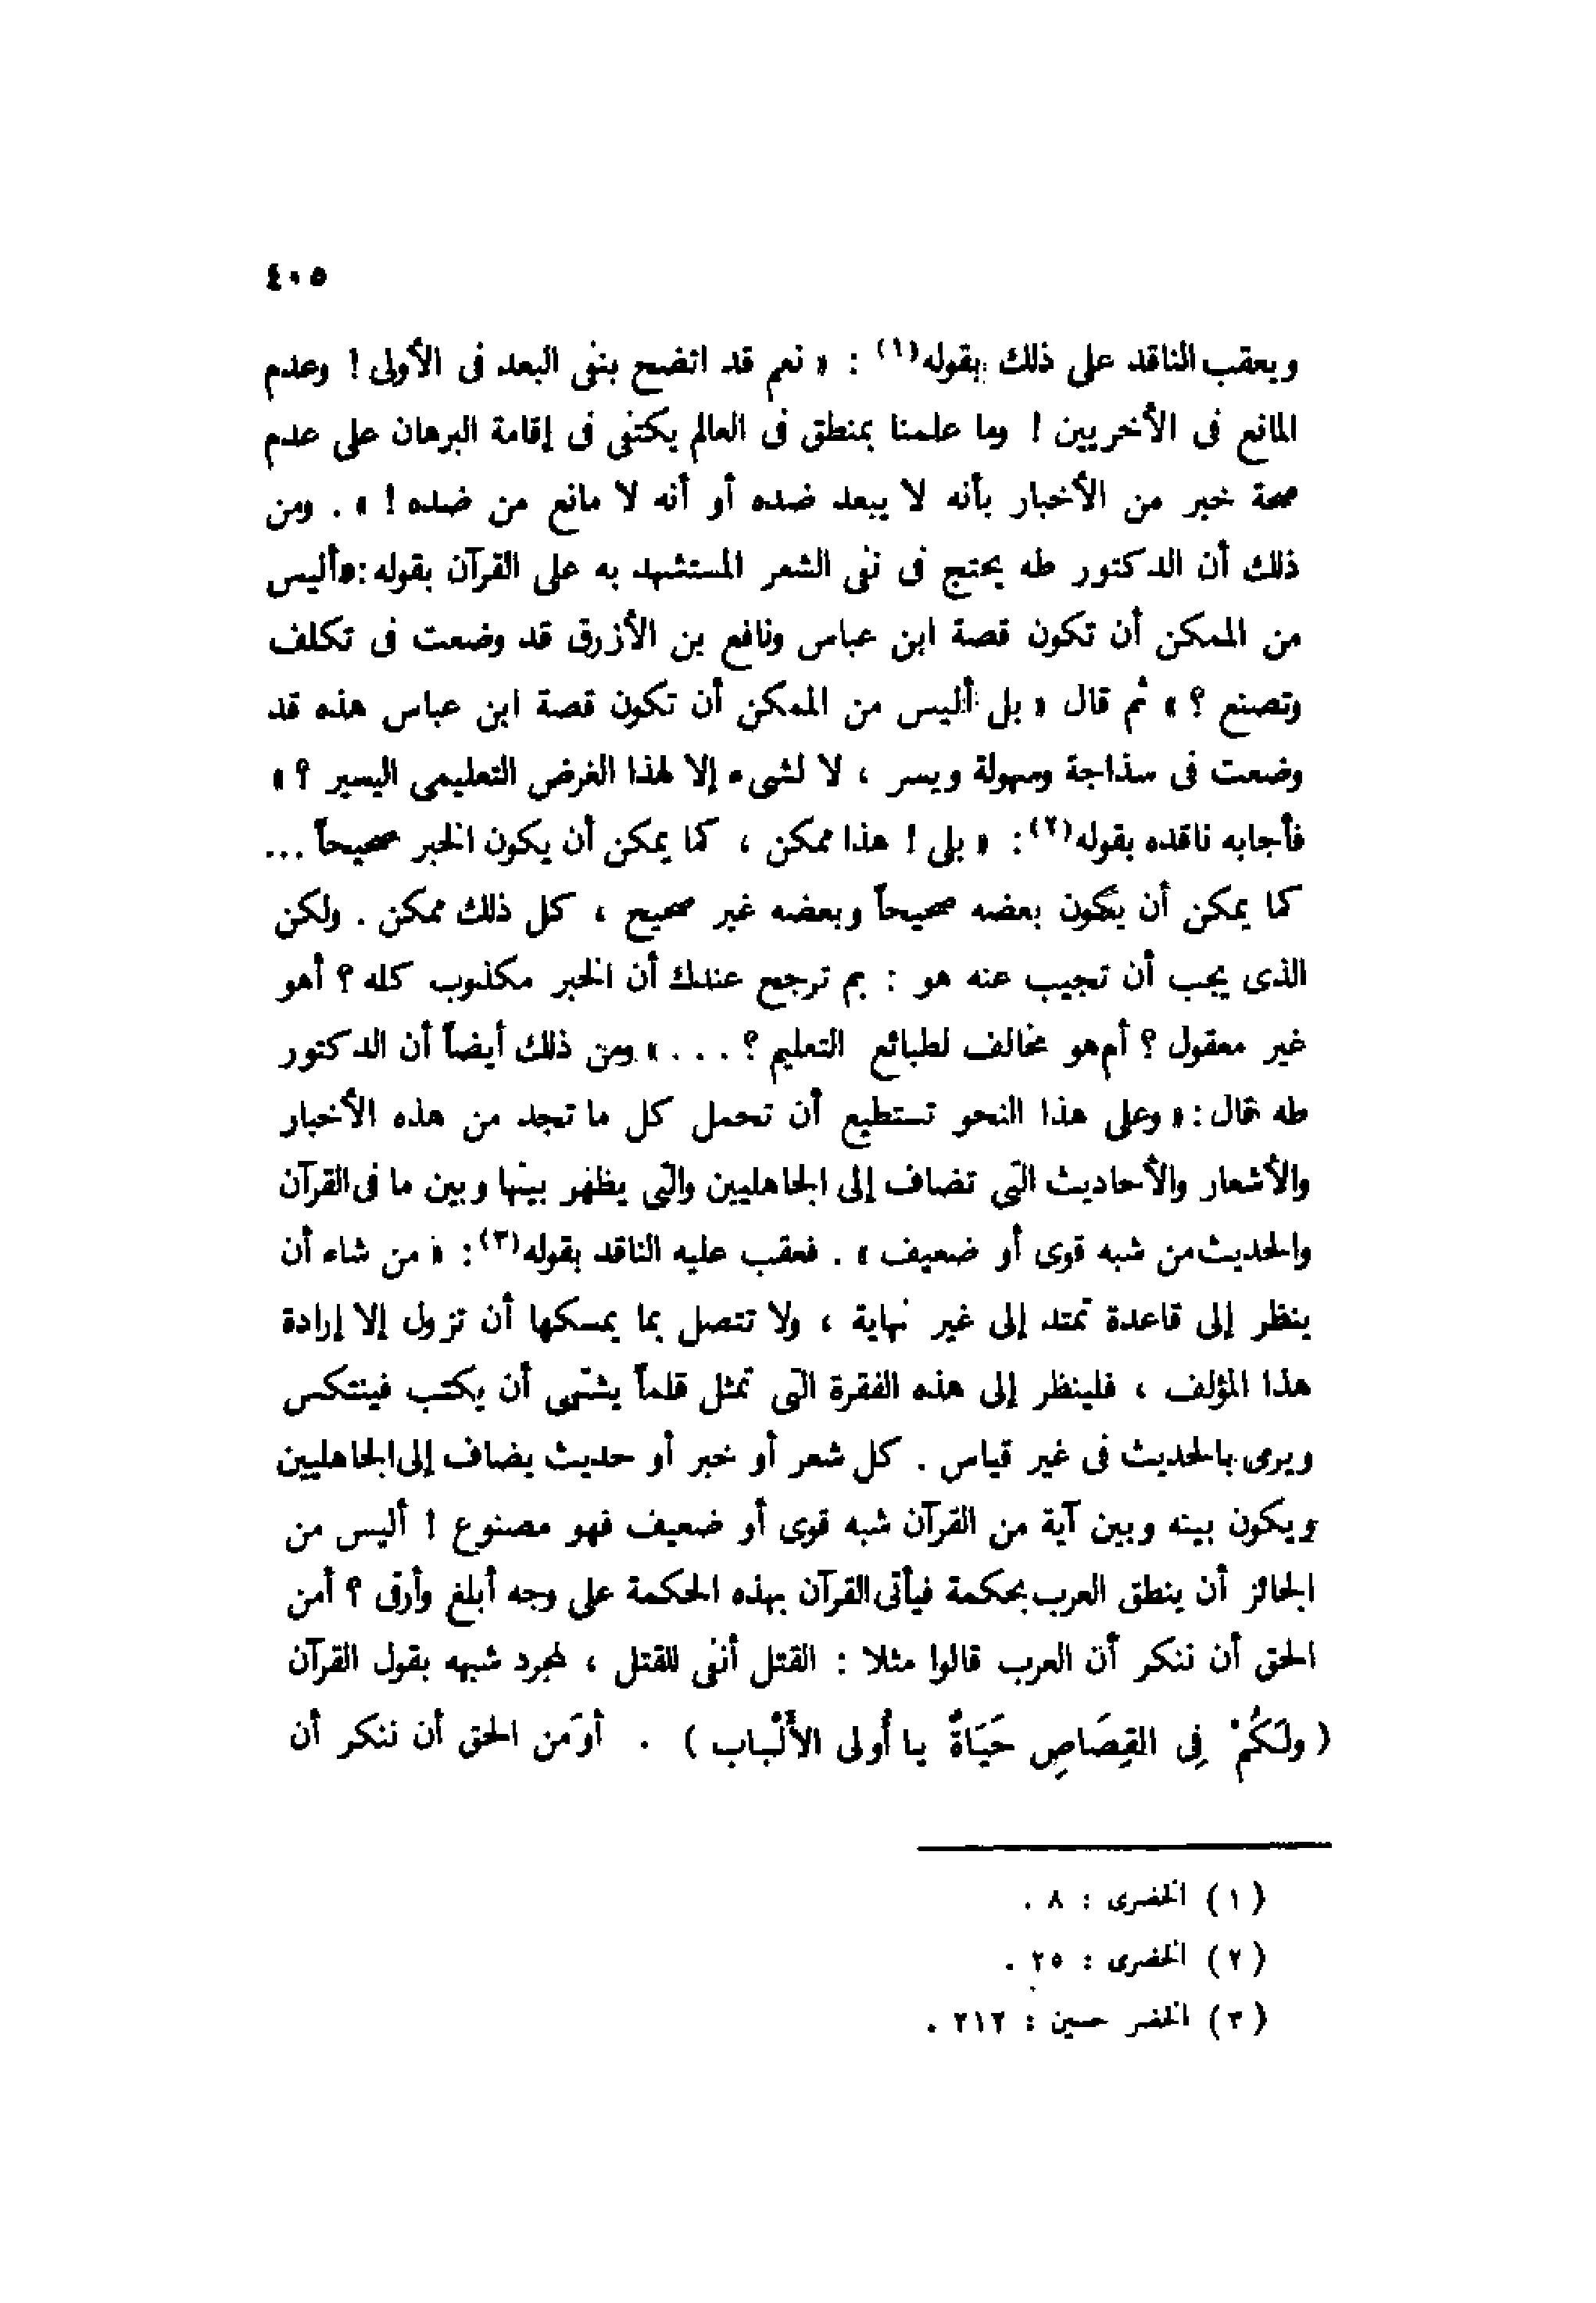 ٤٠٥
ويعقب الناقد على ذلك بقوله(١) : « نعم قد اتضح بنفى البعد فى الأولى ! وعدم
المانع فى الأخريين ! وما علمنا بمنطق فى العالم يكتفى فى إقامة البرهان على عدم
صحة خبر من الأخبار بأنه لا يبعد ضده أو أنه لا مانع من ضده ! » . ومن
ذلك أن الدكتور طه يحتج فى نفى الشعر المستشهد به على القرآن بقوله : «أليس
من الممكن أن تكون قصة ابن عباس ونافع بن الأزرق قد وضعت فى تكلف
وتصنع ؟ » ثم قال « بل أليس من الممكن أن تكون قصة ابن عباس هذه قد
وضعت فى سذاجة وسهولة ويسر ، لا لشىء إلا لهذا الغرض التعليمى اليسير ؟ »
فأجابه ناقده بقوله(٢) : « بلى ! هذا ممكن ، كما يمكن أن يكون الخبر صحيحاً ...
كما يمكن أن يكون بعضه صحيحاً وبعضه غير صحيح ، كل ذلك ممكن . ولكن
الذى يجب أن تجيب عنه هو : بم ترجح عندك أن الخبر مكذوب كله ؟ أهو
غير معقول ؟ أم هو مخالف لطبائع التعليم ؟ . . . » ومن ذلك أيضاً أن الدكتور
طه قال : « وعلى هذا النحو تستطيع أن تحمل كل ما تجد من هذه الأخبار
والأشعار والأحاديث التى تضاف إلى الجاهليين والتى يظهر بينها وبين ما فى القرآن
والحديث من شبه قوى أو ضعيف » . فعقب عليه الناقد بقوله(٣) : « من شاء أن
ينظر إلى قاعدة تمتد إلى غير نهاية ، ولا تتصل بما يمسكها أن تزول إلا إرادة
هذا المؤلف ، فلينظر إلى هذه الفقرة التى تمثل قلماً يشتهى أن يكتب فينتكس
ويرمى بالحديث فى غير قياس . كل شعر أو خبر أو حديث يضاف إلى الجاهليين
ويكون بينه وبين آية من القرآن شبه قوى أو ضعيف فهو مصنوع ! أليس من
الجائز أن ينطق العرب بحكمة فيأتى القرآن بهذه الحكمة على وجه أبلغ وأرقى ؟ أمن
الحق أن ننكر أن العرب قالوا مثلا : القتل أنفى للقتل ، لمجرد شبهه بقول القرآن
( ولَكُمْ فِى القِصَاصِ حَيَاةٌ يا أُولى الأَلْبابِ ) . أوَمن الحق أن ننكر أن
(١) الخضرى : ٨ .
(٢) الخضرى : ٢٥ .
(٣) الخضر حسين : ٢١٢ .